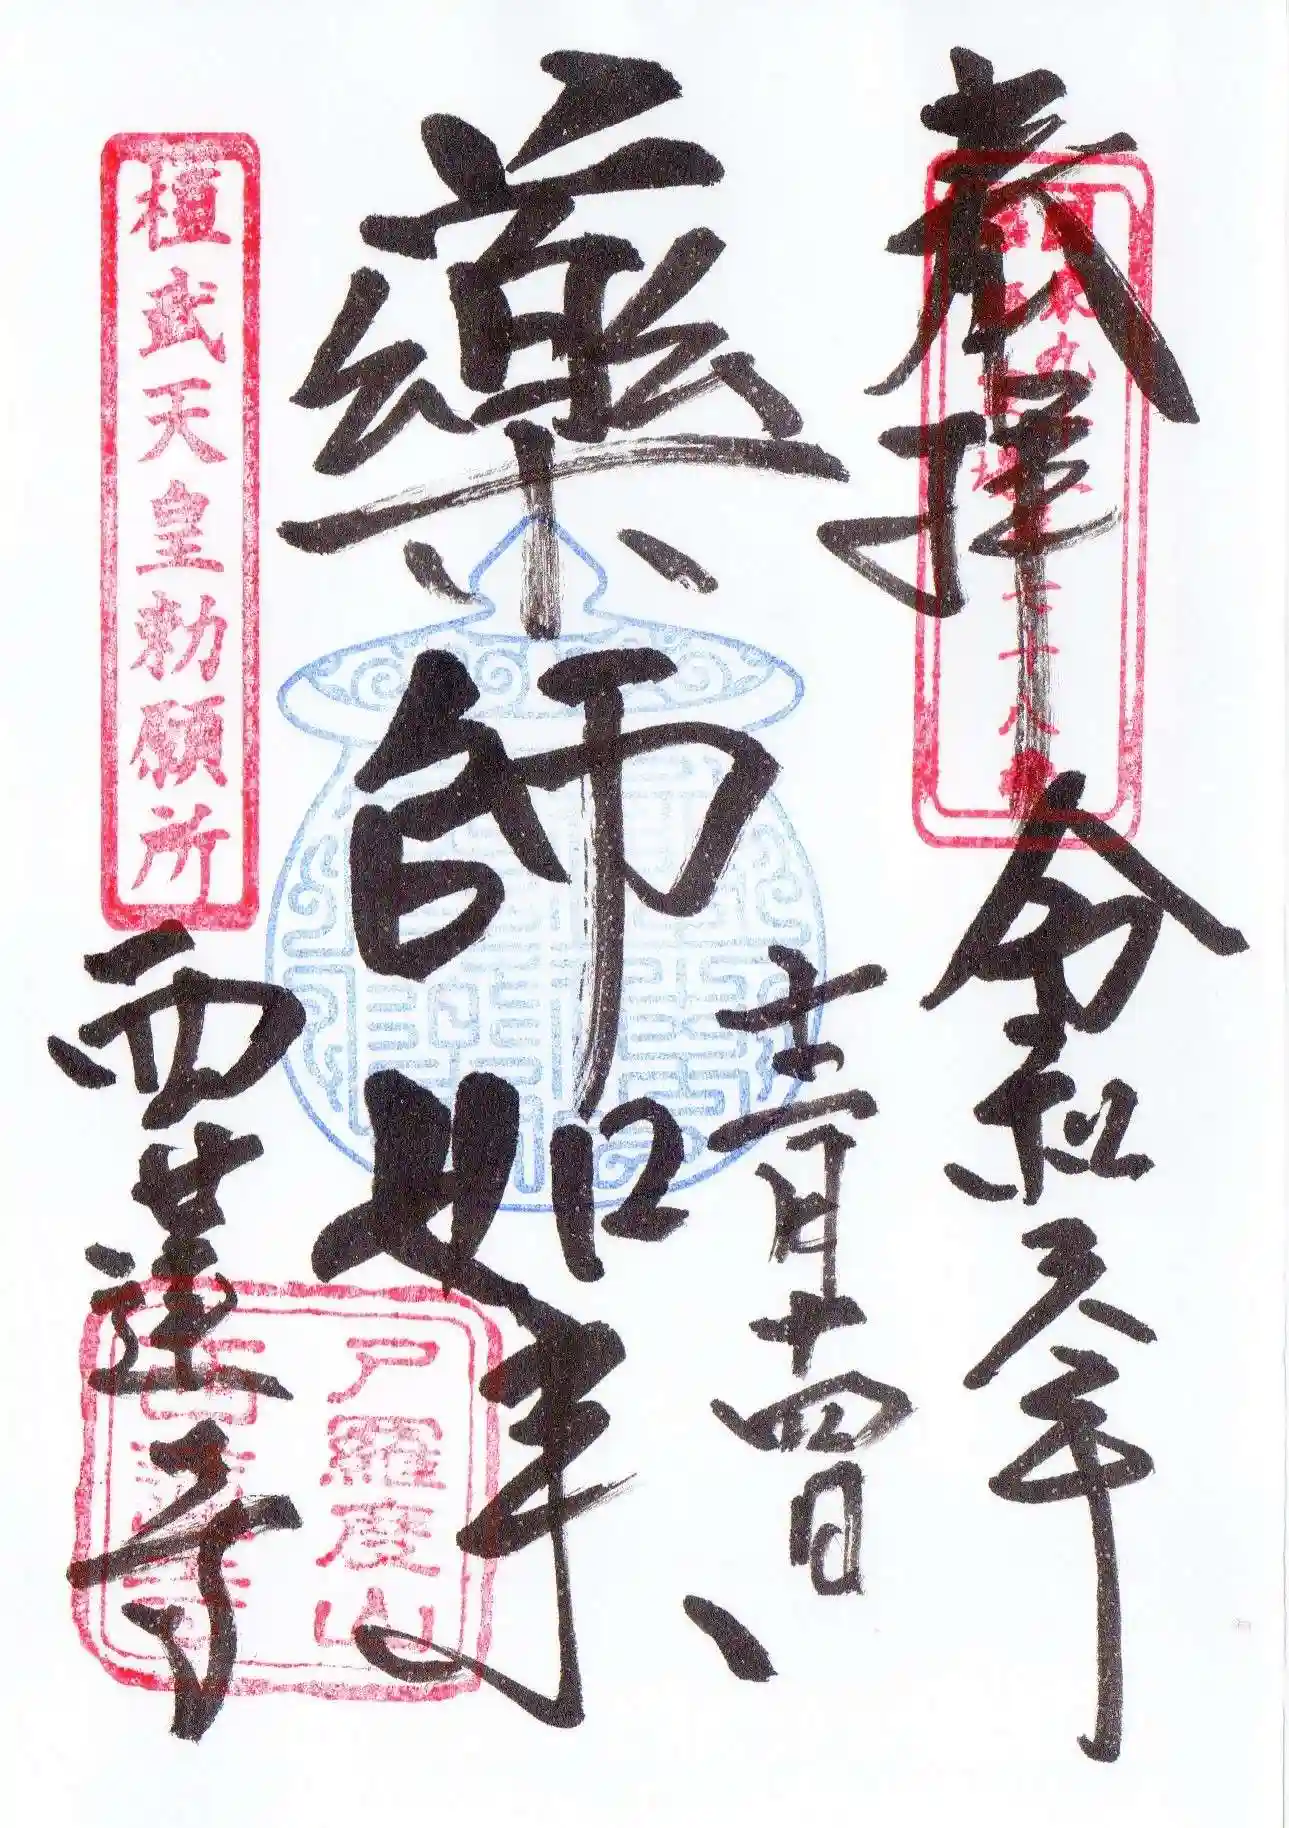 奉拝
令和六年
十二月十四日
藥師如来
桓武天皇勅願所
西蓮寺
戸羅度山
西蓮寺